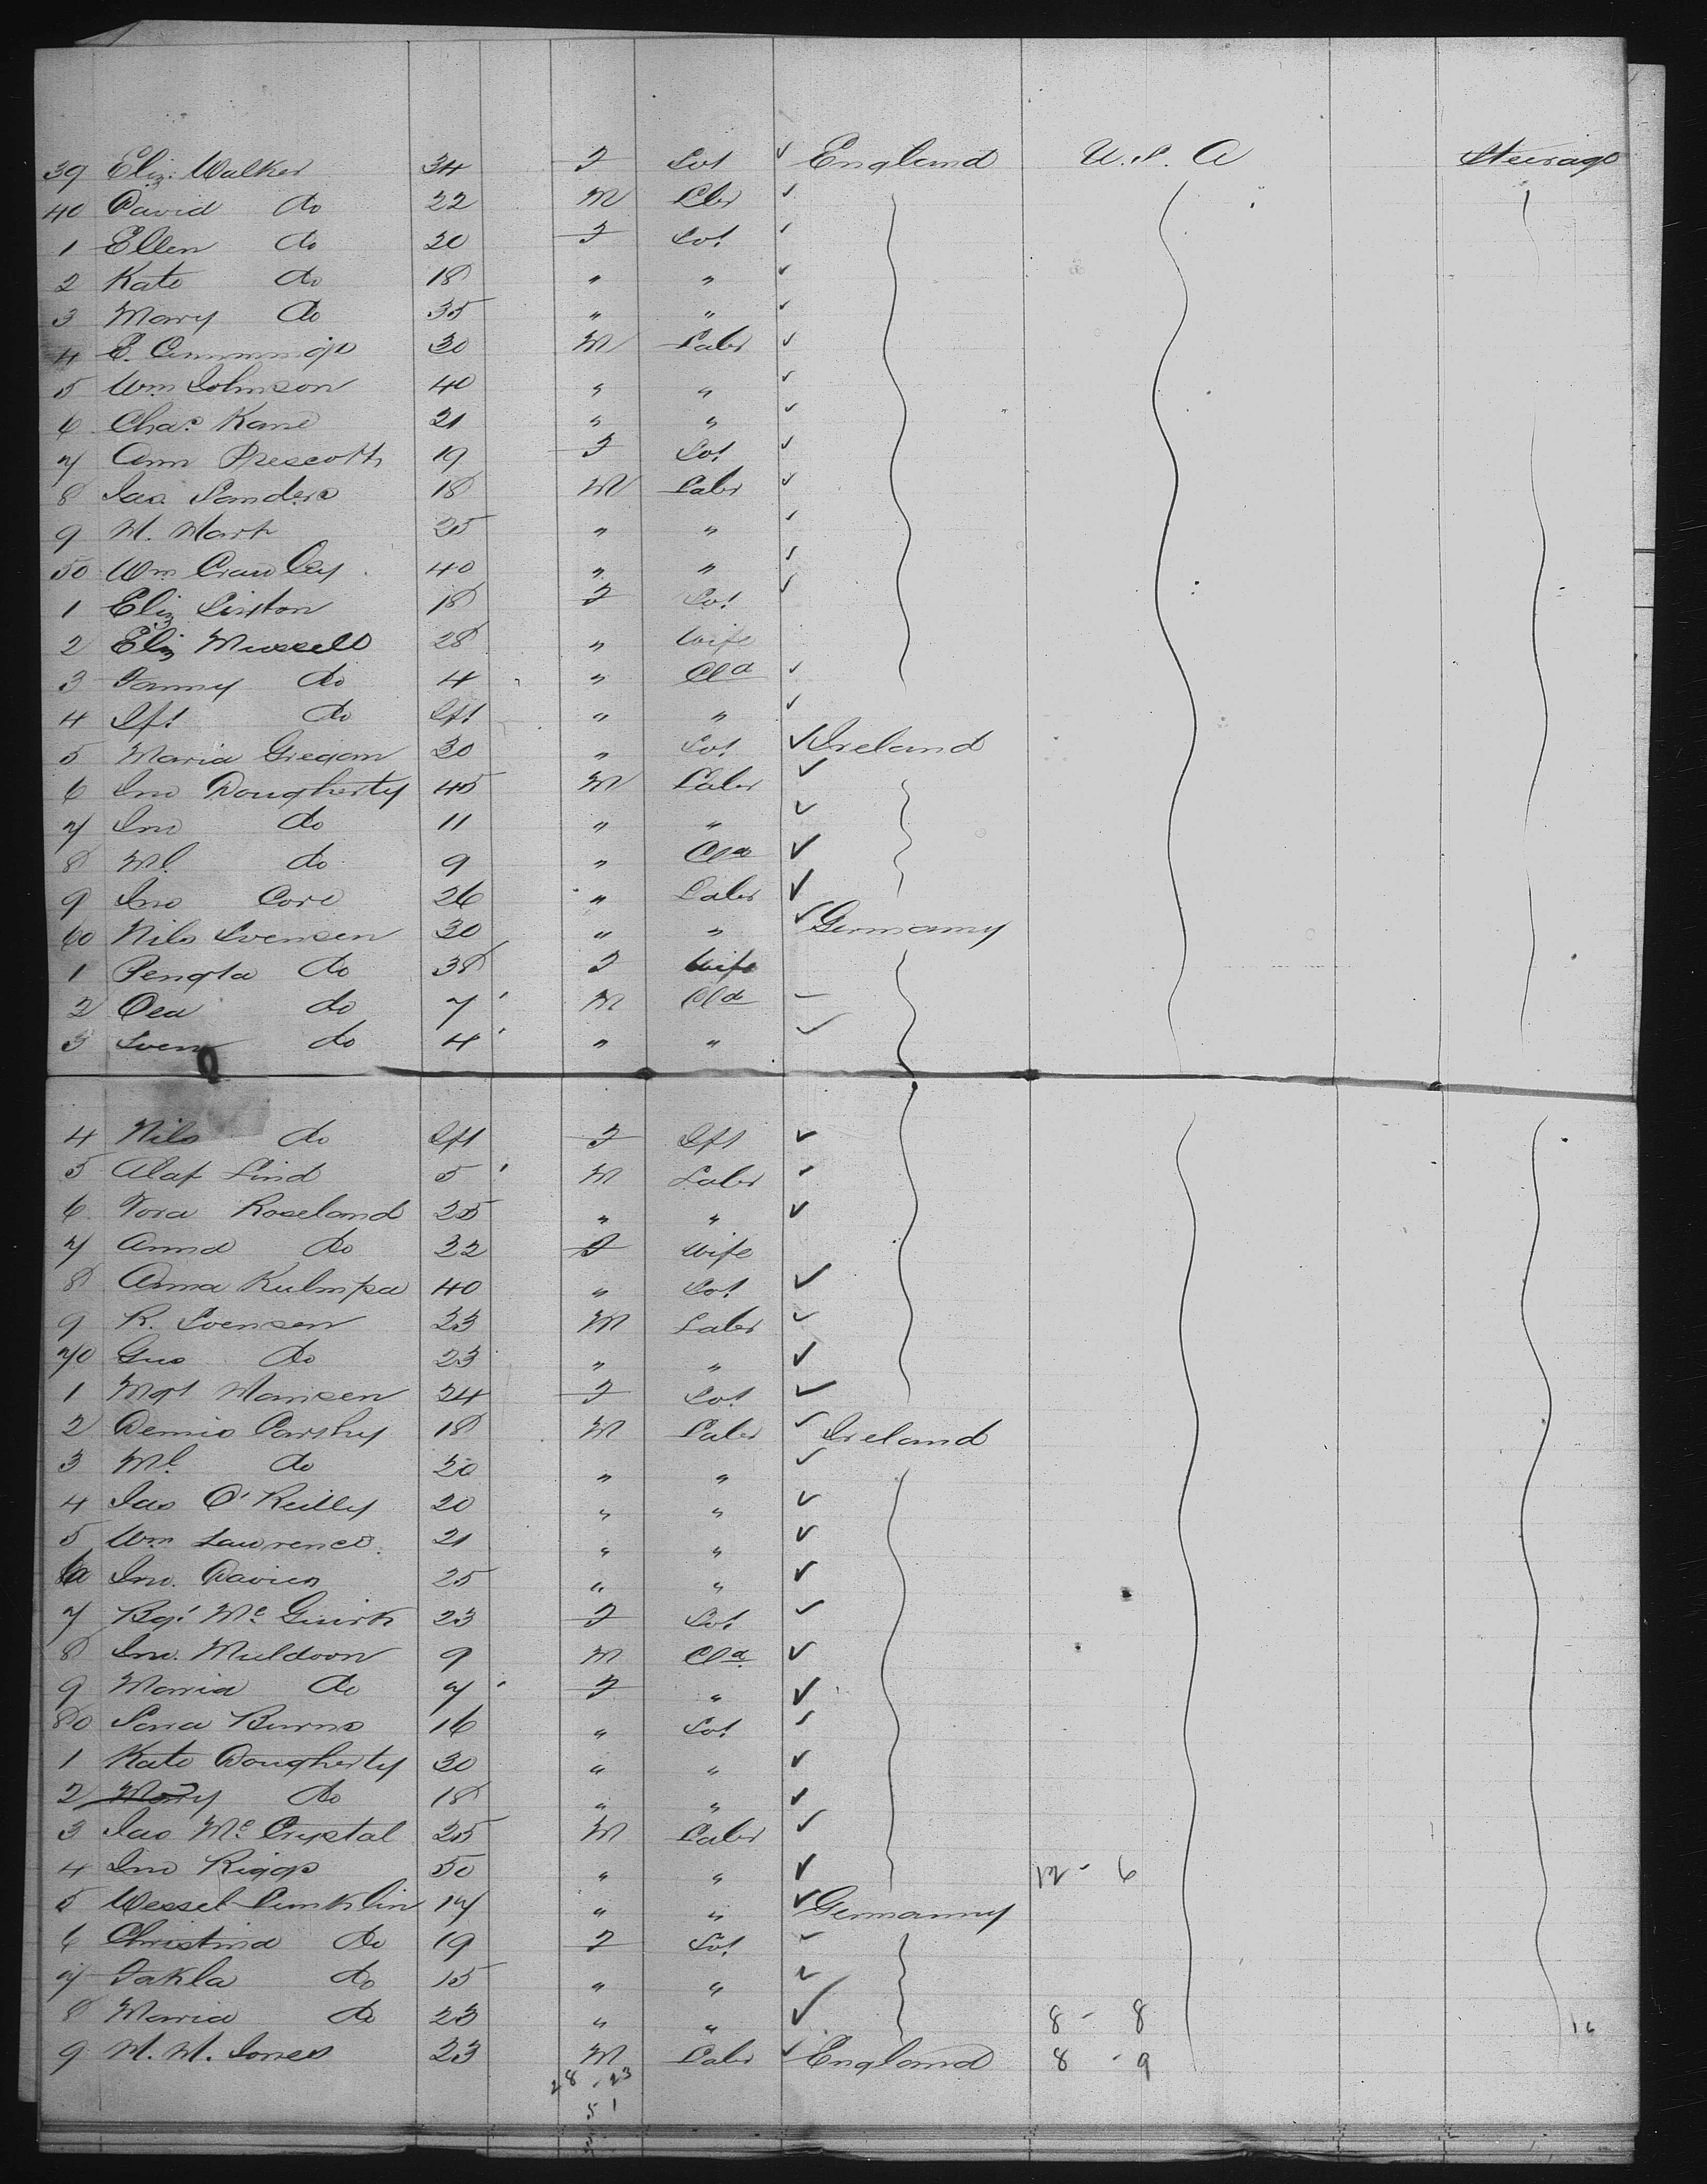 39 Eliz. Walker 34 F Spt England U.S.A Steerage
40 David do 22 M Lbr
1 Ellen do 20 F Spt
2 Kate do 18 " "
3 Mary do 35 " "
4 E. Cummings 30 M Labr
5 Wm Johnson 40 " "
6 Chas. Kane 21 " "
7 Ann Prescott 19 F Spt
8 Jas. Sanders 18 M Labr
9 25 " "
50 Wm Crawley 40 " "
1 Eliz Linton 18 F Spt
2 Eliz Mussell 28 " Wife
3 Fanny do 4 " Cld
4 Ift do Ift " "
5 Maria Gregan 30 " Spt Ireland
6 Jno Dougherty 45 M Labr
7 Jno do 11 " "
8 Ml. do 9 " Cld
9 Jno Core 26 " Labr
60 Nils Svensen 30 " " Germany
1 Pengta do 38 F Wife
2 do 7 M Cld
3 Sven do 4 " "
4 Nils do Ift F Ift
5 Alaf Lind 5 M Labr
6 Tora Roseland 25 " "
7 Anna do 32 F Wife
8 Anna Kulmpa 40 " Spt
9 R. Svensen 23 M Labr
70 Gus do 23 " "
1 Mgt Hansen 24 F Spt
2 Dennis 18 M Labr Ireland
3 Ml. do 20 " "
4 Jas O'Reilly 20 " "
5 Wm Lawrence. 21 " "
6 Jno. Davies 25 " "
7 Bgt Mc Guirk 23 F Spt
8 Jno. Muldoon 9 M Cld
9 Maria do 7 F "
80 Sara Burns 16 " Spt
1 Kate Dougherty 30 " "
2 Mary do 18 " "
3 Jas Mc Crystal 25 M Labr
4 Jno Riggs 50 " " 12 - 6
5 Wessel 17 " " Germany
6 Christina do 19 F Spt
7 Takla do 15 " "
8 Maria do 23 " " 8 - 8 16
9 M. M. Jones 23 M Labr England 8 - 9
28 . 23
51